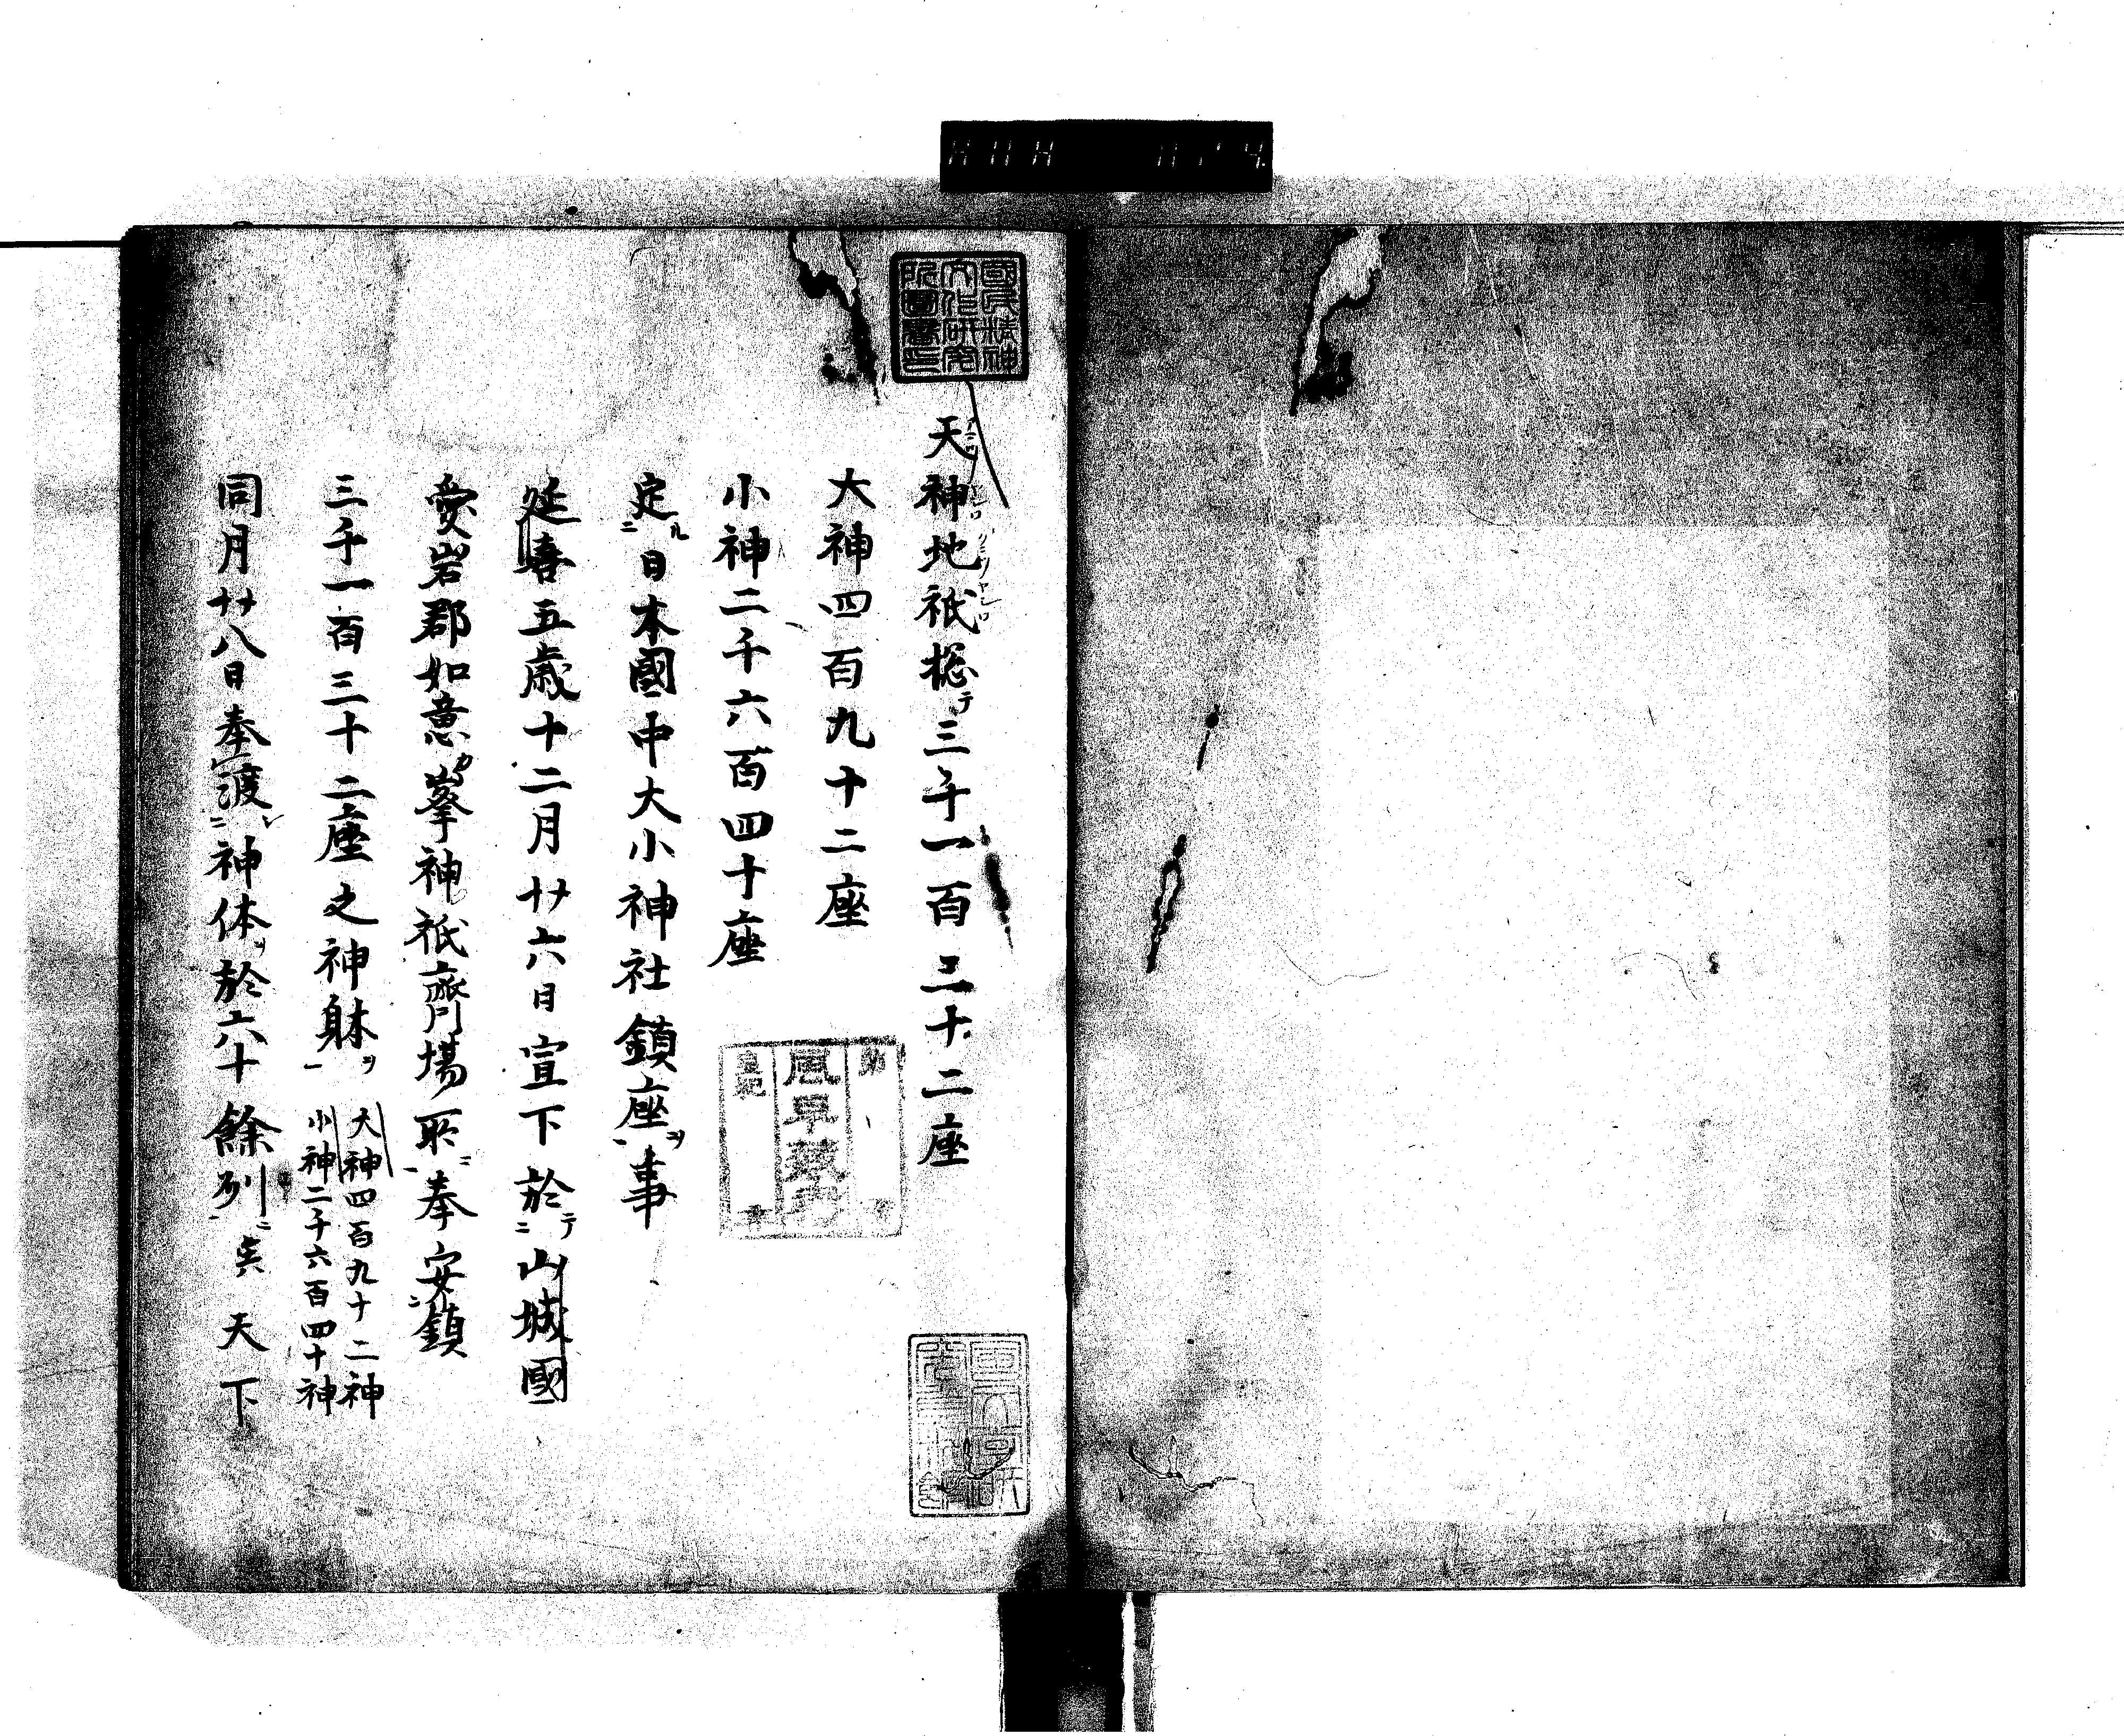 國民精神
文化研究
所圖書印
天神地祇惣テ三千一百三十二座
大神四百九十二座
小神二千六百四十座
定ル二日本國中大小神社鎮座ヲ一事
延喜五歳十二月廿六日宣下於テ二山城國
愛宕郡如意カ峯神祇齋場所ニ一奉安二鎮
三千一百三十二座之神躰ヲ一
大神四百九十二神
小神二千六百四十神
同月廿八日奉渡二神体ヲ於六十餘列ニ一矣天下
風早